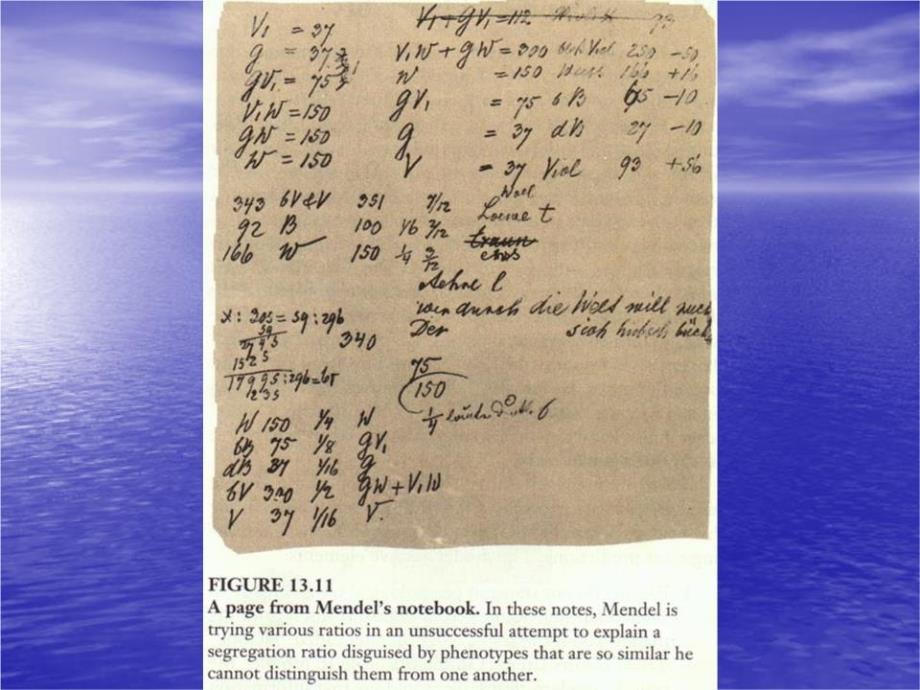 V₁ = 37
g = 37
gV₁ = 75
V₁W = 150
gW = 150
W = 150
V₁ + gV₁ = 112 93
V₁W + gW = 300 Viol 250 -50
W = 150 166 +16
gV₁ = 75 6B 65 -10
g = 37 dB 27 -10
V = 37 Viol 93 +56
343 6V & V 351 7/12
92 B 100 1/6 2/12
166 W 150 1/4 3/12
t
Aehre l
wer durch die will
Der sich hübsch
x : 205 = 59 : 296
340
17995 : 296 =
1235
75
150
1/4
W 150 1/4 W
6B 75 1/8 gV₁
dB 37 1/16 g
6V 300 1/2 gW + V₁W
V 37 1/16 V.
FIGURE 13.11
A page from Mendel's notebook. In these notes, Mendel is
trying various ratios in an unsuccessful attempt to explain a
segregation ratio disguised by phenotypes that are so similar he
cannot distinguish them from one another.